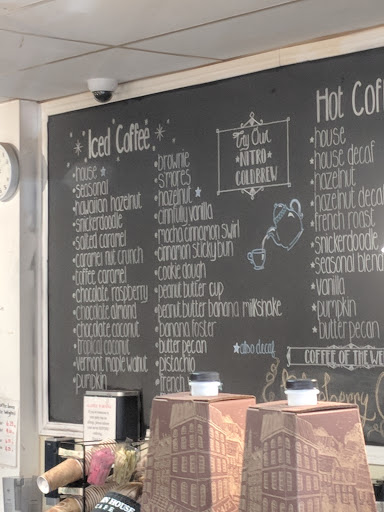 Iced Coffee
house *
seasonal
hawaiian hazelnut
snickerdoodle
salted caramel
caramel nut crunch
coffee caramel
chocolate raspberry
chocolate almond
chocolate coconut
tropical coconut
vermont maple walnut
pumpkin
brownie
s'mores
hazelnut *
cinnfully vanilla
mocha cinnamon swirl
cinnamon sticky bun
cookie dough
peanut butter cup
peanut butter banana milkshake
banana foster
butter pecan
pistachio
french
Try Our
NITRO
COLDBREW
*also decaf
Hot Cof
house
house decaf
hazelnut
hazelnut decaf
french roast
snickerdoodle
seasonal blend
vanilla
pumpkin
butter pecan
COFFEE OF THE WE
HOUSE
CAFE